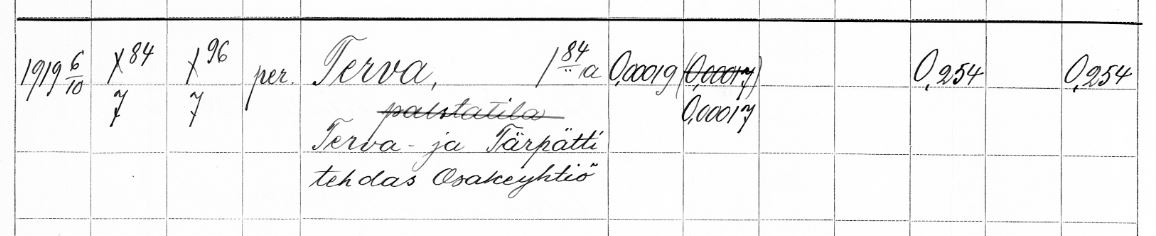 1919 6/10 1 84 1 96 per. Terva, 1 84/" a 0,00019 (0,00017) 0,254 0,254
7 7 palstatila 0,00017
Terva- ja Tärpätti
tehdas Osakeyhtiö